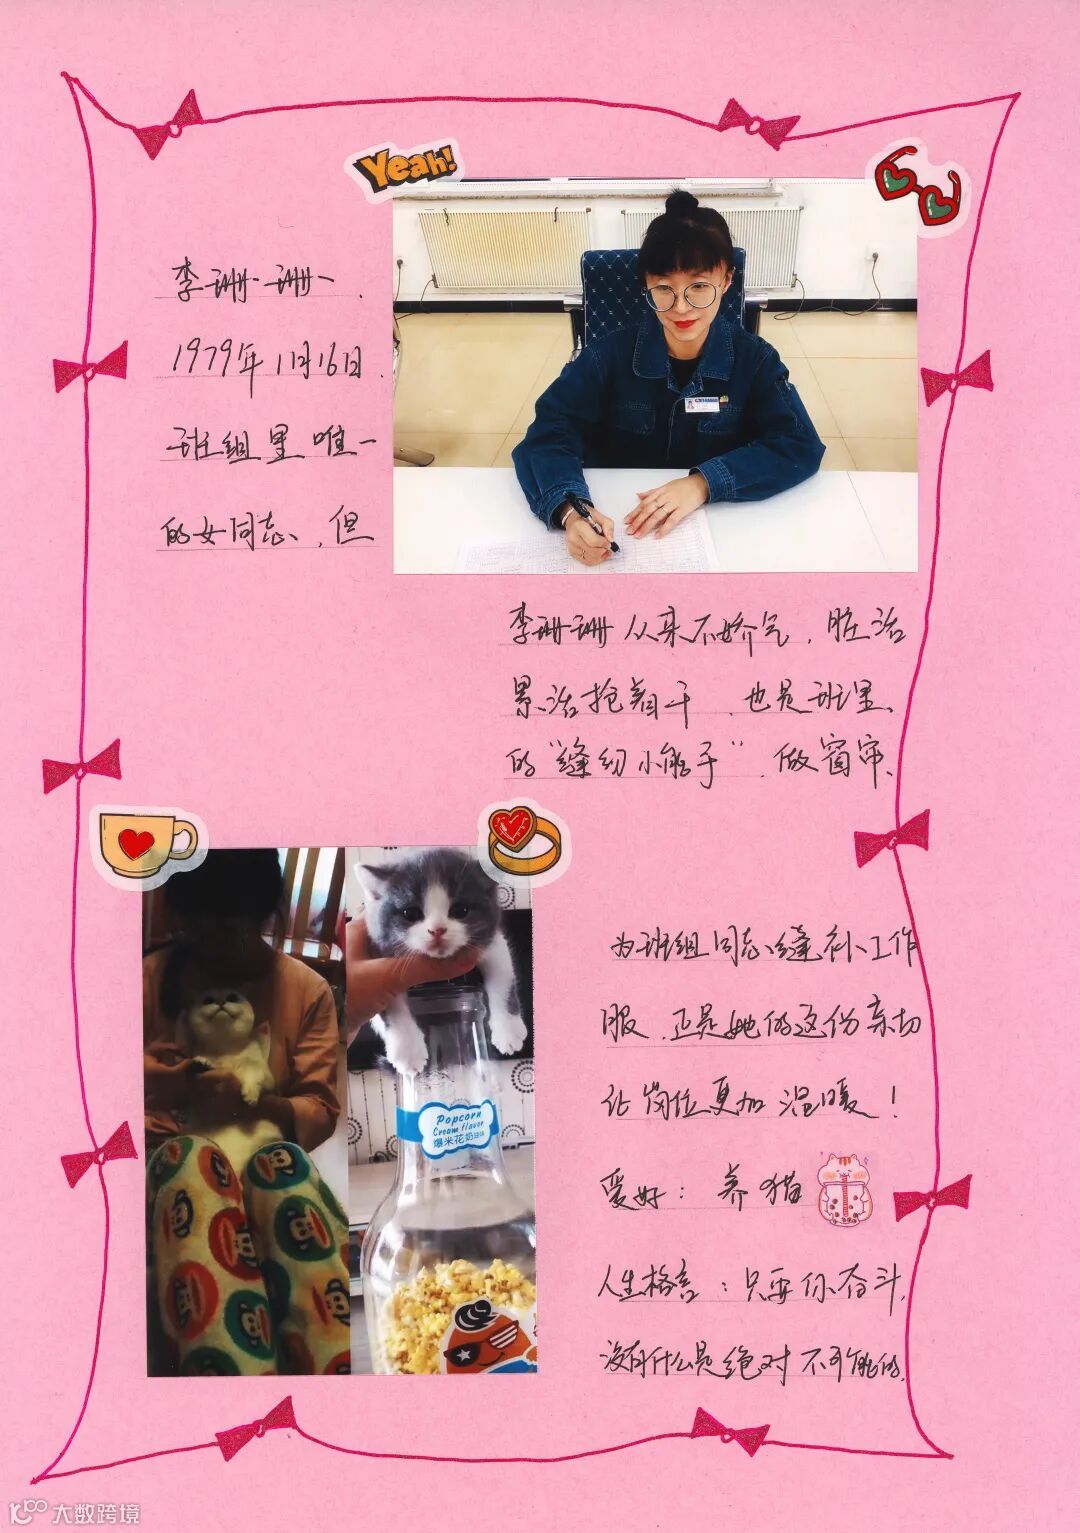 Yeah!
李珊珊，
1979年11月16日，
班组里唯一
的女同志，但
李珊珊从来不娇气，脏活
累活抢着干，也是班里
的“缝纫小能手”，做窗帘、
为班组同志缝补工作
服，正是她的这份亲切
让岗位更加温暖！
爱好：养猫
人生格言：只要你奋斗，
没有什么是绝对不可能的。
Popcorn
Cream flavor
爆米花奶油味
大数跨境